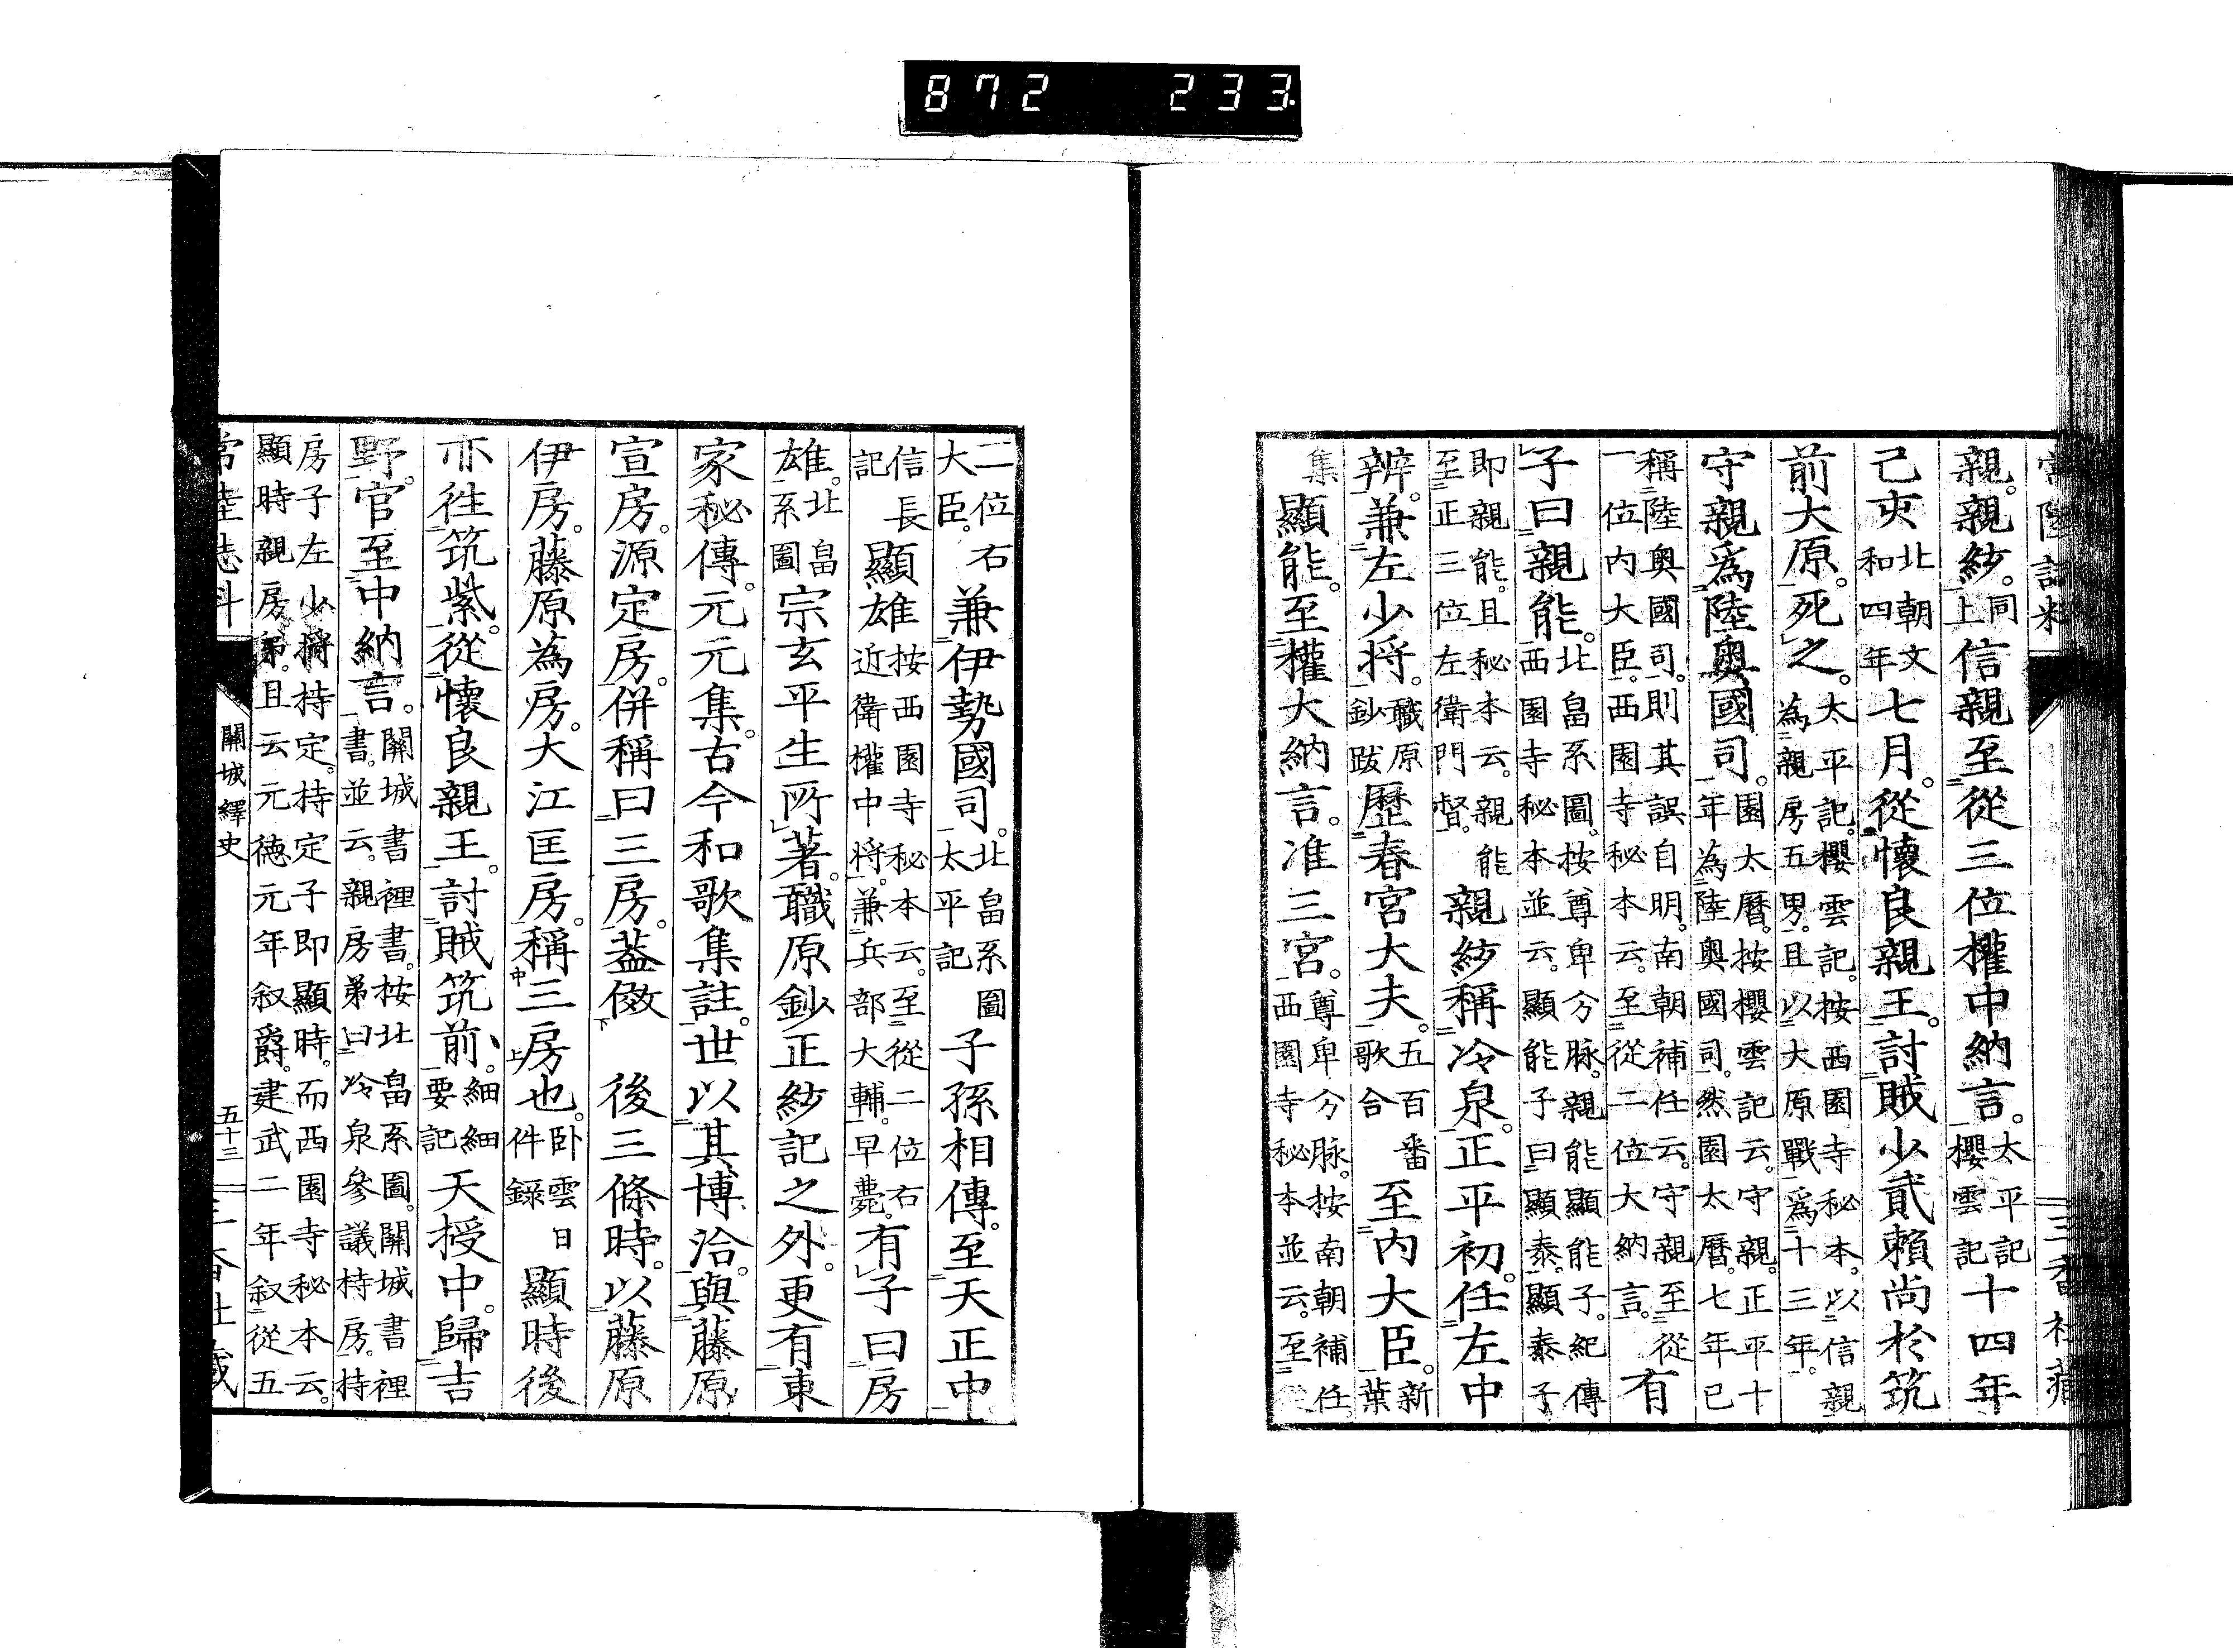 872 233
常陸誌料 三香社藏
親。親紗。同上信親至從三位權中納言。太平記櫻雲記十四年
己亥北朝文和四年七月。從懷良親王。討賊少貳賴尚於筑
前大原。死之。太平記。櫻雲記。按西園寺秘本。以信親為親房五男。且以大原戰爲十三年。
守親爲陸奧國司。園太曆。按櫻雲記云。守親。正平十年為陸奧國司。然園太曆。七年已
稱陸奧國司。則其誤自明。南朝補任云。守親至從一位內大臣。西園寺秘本云。至從二位大納言。有
子曰親能。北畠系圖。按尊卑分脉。親能顯能子。紀傳西園寺秘本並云。顯能子曰顯泰。顯泰子
即親能。且秘本云。親能至正三位左衛門督。親紗稱冷泉。正平初。任左中
辨。兼左少將。職原鈔跋歷春宮大夫。五百番歌合至內大臣。新葉
集顯能。至權大納言。准三宮。尊卑分脉。按南朝補任。西園寺秘本並云。至從
二位右大臣。兼伊勢國司。北畠系圖太平記子孫相傳。至天正中
信長記顯雄按西園寺秘本云。至從二位右近衛權中將。兼兵部大輔。早薨。有子曰房
雄。北畠系圖宗玄平生所著。職原鈔正紗記之外。更有東
家秘傳。元元集。古今和歌集註。世以其博洽。與藤原
宣房。源定房。併稱曰三房。蓋倣 後三條時。以藤原
伊房。藤原為房。大江匡房。稱三房也。臥雲日件錄顯時後
亦徃筑紫。從懷良親王。討賊筑前、細細要記天授中。歸吉
野。官至中納言。關城書裡書。按北畠系圖。關城書裡書。並云。親房弟曰冷泉參議持房。持
房子左少將持定。持定子即顯時。而西園寺秘本云。顯時親房弟。且云元德元年叙爵。建武二年叙從五
常陸誌料 關城繹史 五十三 三香社藏